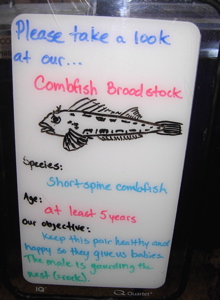 Please take a look
at our...
Combfish Broodstock
Species:
Shortspine combfish
Age:
at least 5 years
Our objective:
Keep this pair healthy and
happy so they give us babies.
The male is guarding the
nest (rock).
IQ
Quartet